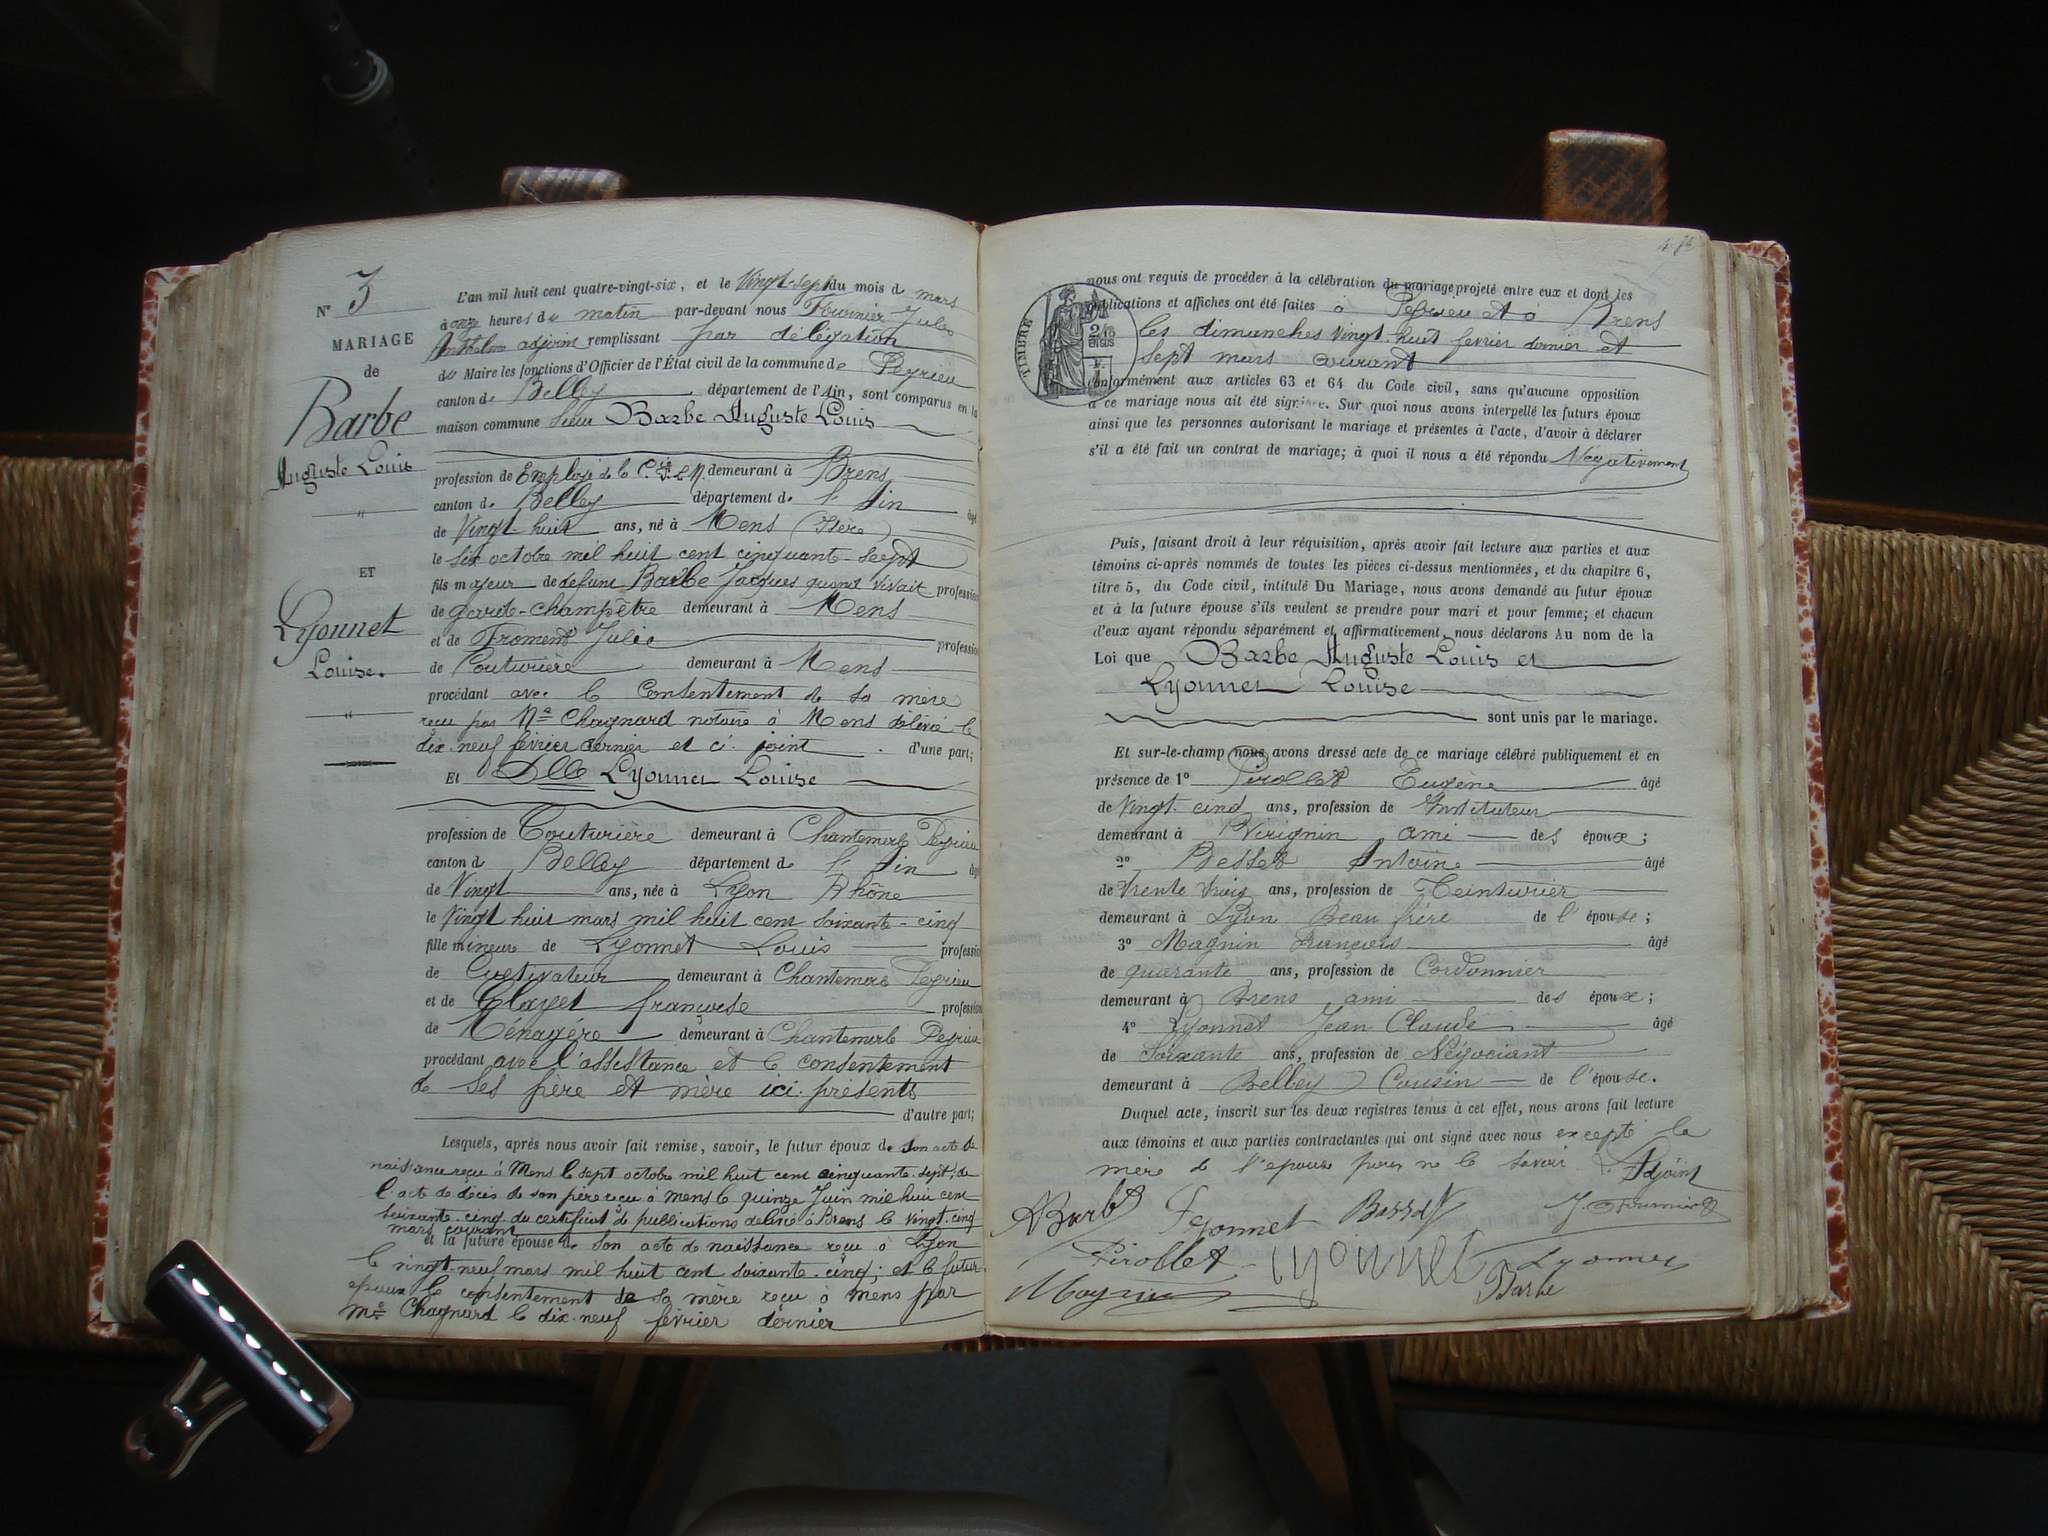 N° 3
MARIAGE
de
Barbe
Auguste Louis
"
ET
Lyonnet
Louise.
"
L'an mil huit cent quatre-vingt-six, et le Vingt-sept du mois d mars
à onze heures du matin par-devant nous Fournier Jules
Anthelme adjoint remplissant par délégation
du Maire les fonctions d'Officier de l'État civil de la commune de Peyrieu
canton de Belley département de l'Ain, sont comparus en la
maison commune Sieur Barbe Auguste Louis
profession de Employé de la Cie P. L. M. demeurant à Brens
canton de Belley département de l'Ain âgé
de Vingt-huit ans, né à Mens (Isère)
le six octobre mil huit cent cinquante-sept
fils majeur de defunt Barbe Jacques quand vivait profession
de garde-champêtre demeurant à Mens
et de Froment Julie profession
de Couturière demeurant à Mens
procédant avec le Consentement de sa mère
reçu par Me Chagnard notaire à Mens délivré le
dix-neuf février dernier et ci-joint d'une part;
Et Dlle Lyonnet Louise
profession de Couturière demeurant à Chantemerle Peyrieu
canton d Belley département de l'Ain âgé
de Vingt ans, née à Lyon Rhône
le Vingt huit mars mil huit cent soixante-cinq
fille mineure de Lyonnet Louis profession
de Cultivateur demeurant à Chantemerle Peyrieu
et de Clayet françoise profession
de Ménagère demeurant à Chantemerle Peyrieu
procédant avec l'assistance et le consentement
de ses père et mère ici présents
d'autre part;
Lesquels, après nous avoir fait remise, savoir, le futur époux de son acte de
naissance reçu à Mens le sept octobre mil huit cent cinquante-sept, de
l'acte de décès de son père reçu à Mens le quinze Juin mil huit cent
soixante-cinq du certificat de publications délivré à Brens le vingt-cinq
mars courant
et la future épouse de son acte de naissance reçu à Lyon
le vingt-neuf mars mil huit cent soixante-cinq; et le futur
époux le consentement de sa mère reçu à Mens par
Me Chagnard le dix-neuf février dernier
nous ont requis de procéder à la célébration du mariage projeté entre eux et dont les
publications et affiches ont été faites à Peyrieu et à Brens
les dimanches vingt huit fevrier dernier et
sept mars courant
TIMBRE
conformément aux articles 63 et 64 du Code civil, sans qu'aucune opposition
à ce mariage nous ait été signifiée. Sur quoi nous avons interpellé les futurs époux
ainsi que les personnes autorisant le mariage et présentes à l'acte, d'avoir à déclarer
s'il a été fait un contrat de mariage; à quoi il nous a été répondu Négativement
Puis, faisant droit à leur réquisition, après avoir fait lecture aux parties et aux
témoins ci-après nommés de toutes les pièces ci-dessus mentionnées, et du chapitre 6,
titre 5, du Code civil, intitulé Du Mariage, nous avons demandé au futur époux
et à la future épouse s'ils veulent se prendre pour mari et pour femme; et chacun
d'eux ayant répondu séparément et affirmativement, nous déclarons Au nom de la
Loi que Barbe Auguste Louis et
Lyonnet Louise
sont unis par le mariage.
Et sur-le-champ nous avons dressé acte de ce mariage célébré publiquement et en
présence de 1° Pirollet Eugène âgé
de Vingt-cinq ans, profession de Instituteur
demeurant à Virignin ami des époux;
2° Besset Antoine âgé
de trente trois ans, profession de Teinturier
demeurant à Lyon Beau frère de l'épouse;
3° Magnin François âgé
de quarante ans, profession de Cordonnier
demeurant à Brens ami des époux;
4° Lyonnet Jean Claude âgé
de Soixante ans, profession de Négociant
demeurant à Belley Cousin de l'épouse.
Duquel acte, inscrit sur les deux registres tenus à cet effet, nous avons fait lecture
aux témoins et aux parties contractantes qui ont signé avec nous excepté la
mère de l'epouse pour ne le savoir L'Adjoint
ABarbe Lyonnet Besset J. Fournier
Pirollet Lyonnet Lyonnet
Magnin Barbe